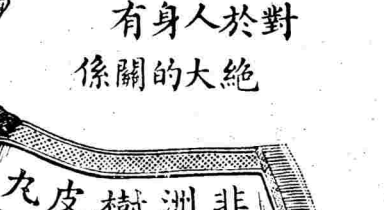 對於人身有
絕大的關係
非洲樹皮丸